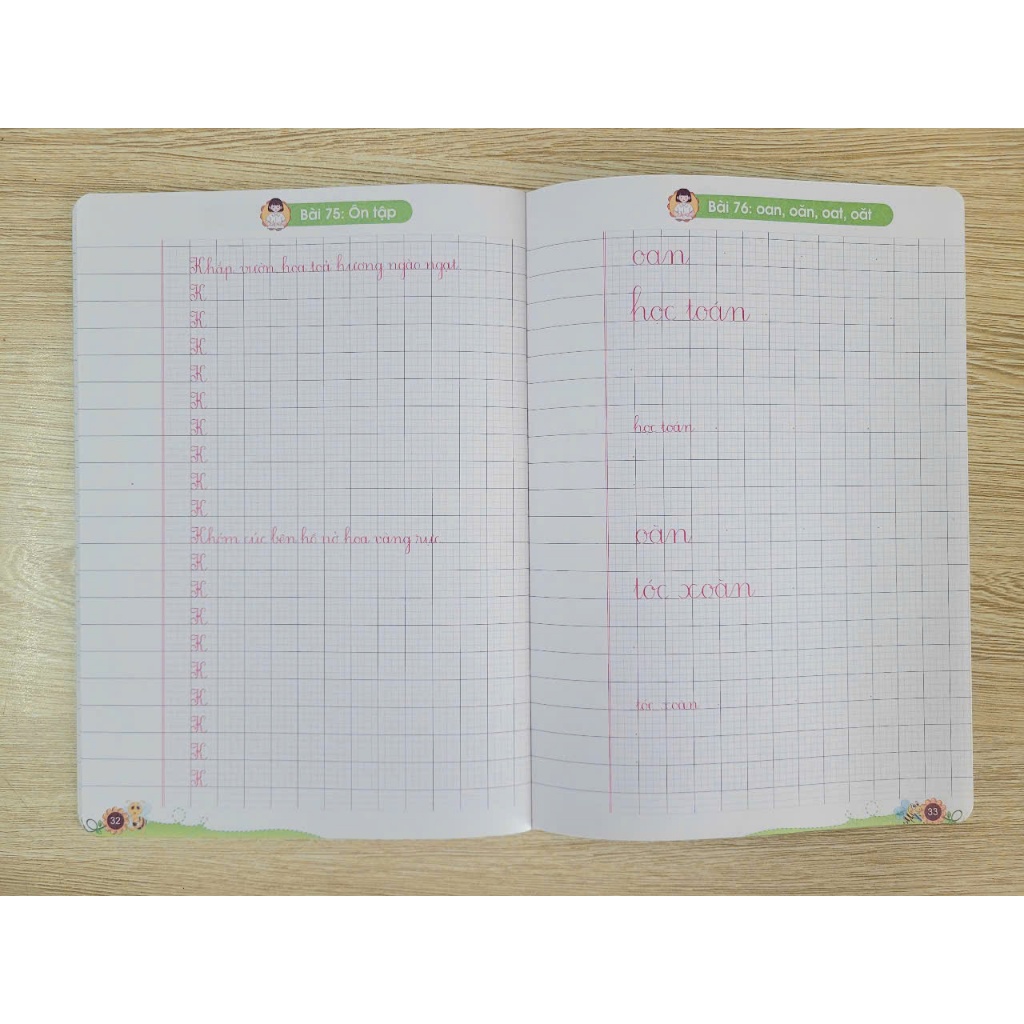 Bài 75: Ôn tập
Khắp vườn hoa toả hương ngào ngạt.
K
K
K
K
K
K
K
K
K
Khóm cúc bên hồ nở hoa vàng rực.
K
K
K
K
K
K
K
K
K
32
Bài 76: oan, oăn, oat, oăt
oan
học toán
học toán
oăn
tóc xoăn
tóc xoăn
33